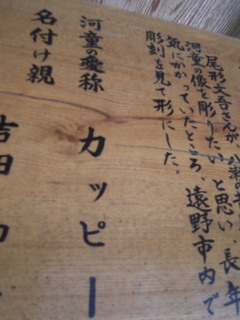 尾形文吾さんが、
河童の像を彫りたいと思い、長年
気にかかっていたところ、遠野市内で
彫刻を見て形にした。
河童の愛称
カッピー
名付け親
吉田